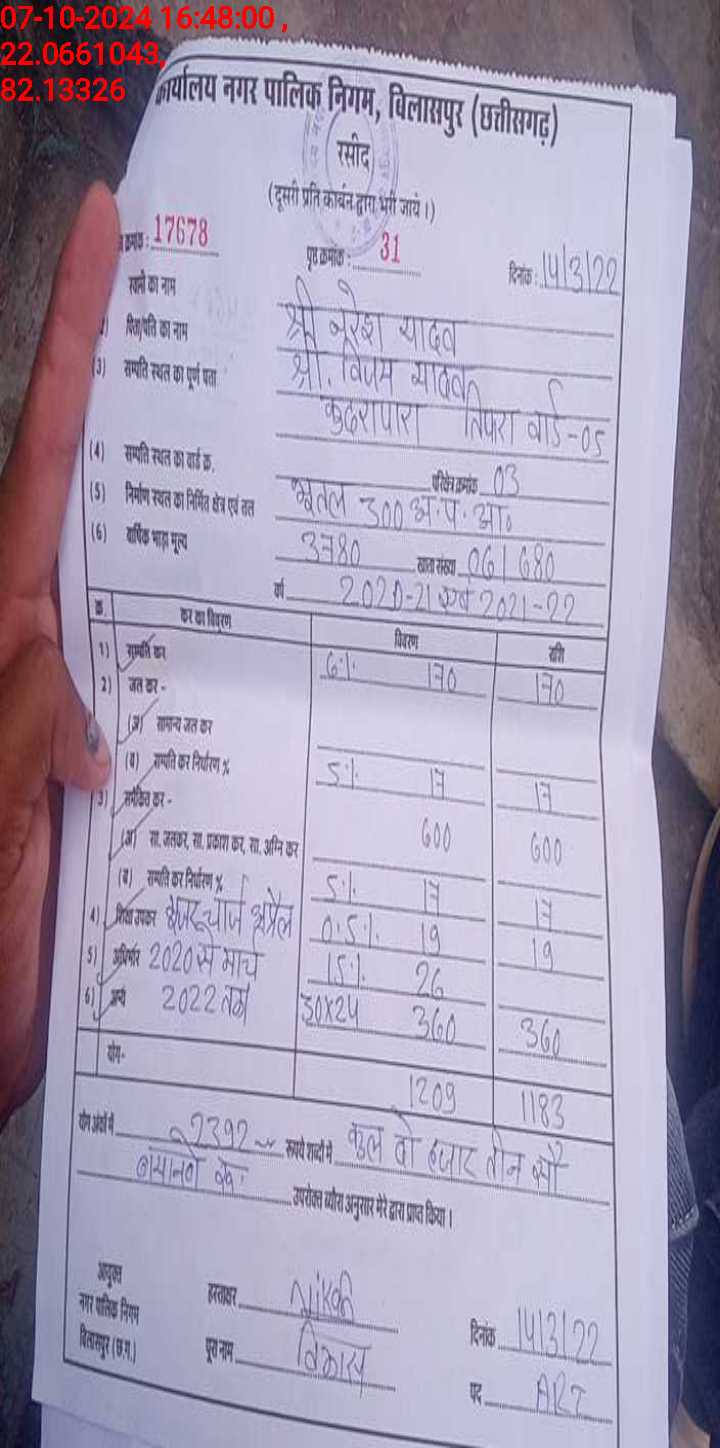 07-10-2024 16:48:00 ,
22.0661043,
82.13326
कार्यालय नगर पालिक निगम, बिलासपुर (छत्तीसगढ़)
रसीद
(दूसरी प्रति कार्बन द्वारा भरी जाये।)
क्रमांक : 17678 पृष्ठ क्रमांक : 31 दिनांक : 14/3/22
स्वामी का नाम श्री नरेश यादव
पिता/पति का नाम श्री. विजय यादव
(3) सम्पति स्थल का पूर्ण पता कुदरापारा तिफरा वार्ड-05
(4) सम्पति स्थल का वार्ड क्र. परिक्षेत्र क्रमांक 03
(5) निर्माण स्थल का निर्मित क्षेत्र एवं तल भूतल 300 अ.प. आ०
(6) वार्षिक भाड़ा मूल्य 3780 खाता संख्या 061680
वर्ष 2020-21 एवं 2021-22
क्र. कर का विवरण विवरण राशि
1) सम्पति कर 6% 170 170
2) जल कर -
(अ) सामान्य जल कर
(ब) सम्पति कर निर्धारण % 5% 17 17
3) समेकित कर -
(अ) सा. जलकर, सा. प्रकाश कर, सा. अग्नि कर 600 600
(ब) सम्पति कर निर्धारण % 5% 17 17
4) शिक्षा उपकर यूजर चार्ज अप्रैल 0.5% 19 19
5) अधिभार 2020 से मार्च 15% 26
6) अन्य 2022 तक 30X24 360 360
योग- 1209 1183
योग अंकों में 2392 रूपये शब्दों में कुल दो हजार तीन सौ
बयानवे रू.
उपरोक्त ब्यौरा अनुसार मेरे द्वारा प्राप्त किया।
आयुक्त
नगर पालिक निगम
बिलासपुर (छ.ग.)
हस्ताक्षर
दिनांक 14/3/22
पूरा नाम विकास
पद ART